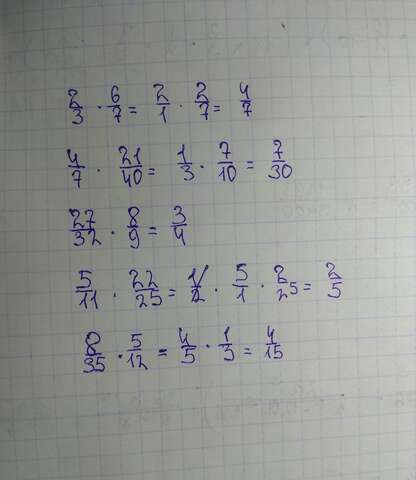 2/3 · 6/7 = 2/1 · 2/7 = 4/7
4/7 · 21/40 = 1/3 · 7/10 = 7/30
27/32 · 8/9 = 3/4
5/11 · 22/25 = 5/1 · 2/25 = 2/5
8/35 · 5/12 = 4/5 · 1/3 = 4/15